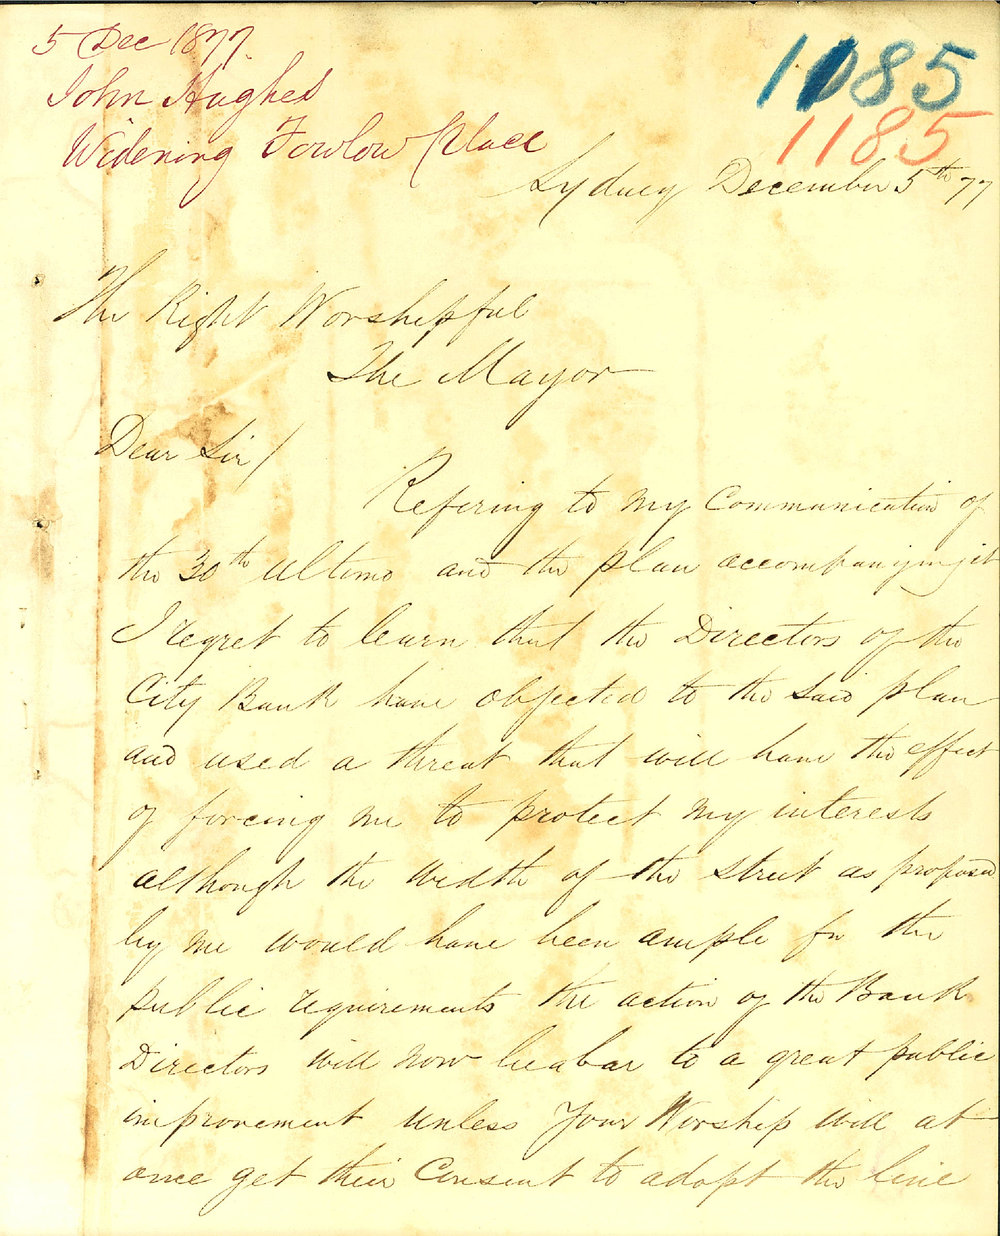 5 Dec 1877
John Hughes
Widening Fowlow Place
1085
1185
Sydney December 5th 77
The Right Worshepful
The Mayor
Dear Sir/
Refering to my Communication of
the 30th ultimo and the plan accompanying it
I regret to learn that the Directors of the
City Bank have objected to the said plan
and used a threat that will have the effect
of forcing me to protect my interests
although the width of the street as proposed
by me would have been ample for the
public requirements the action of the Bank
Directors will now be a bar to a great public
improvement unless Your Worship will at
once get their Consent to adopt the line